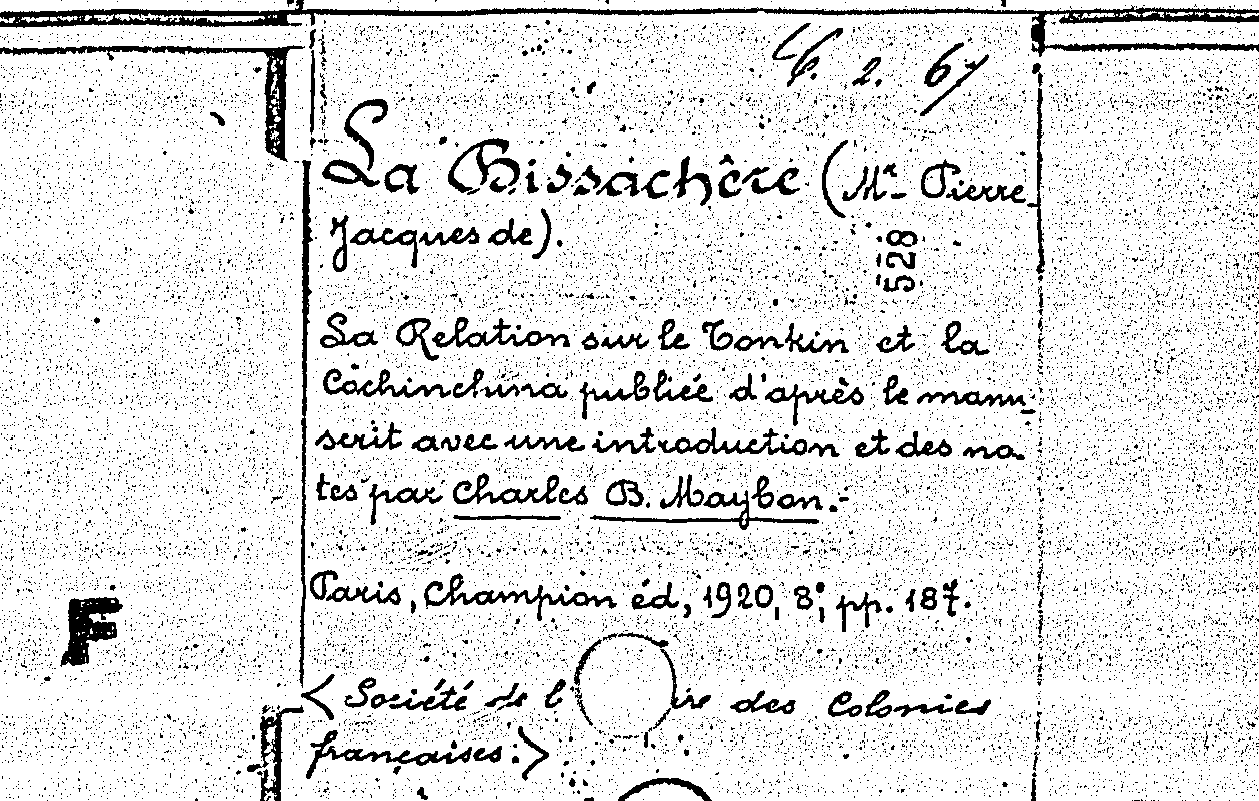 2. 67
La Bissachêre (Mr Pierre
Jacques de).
528
La Relation sur le Tonkin et la
Cochinchina publiée d'après le manu-
scrit avec une introduction et des no-
tes par Charles B. Maybon.-
Paris, Champion éd, 1920, 8°, pp. 187.
F
< Société de l' ire des Colonies
françaises:>